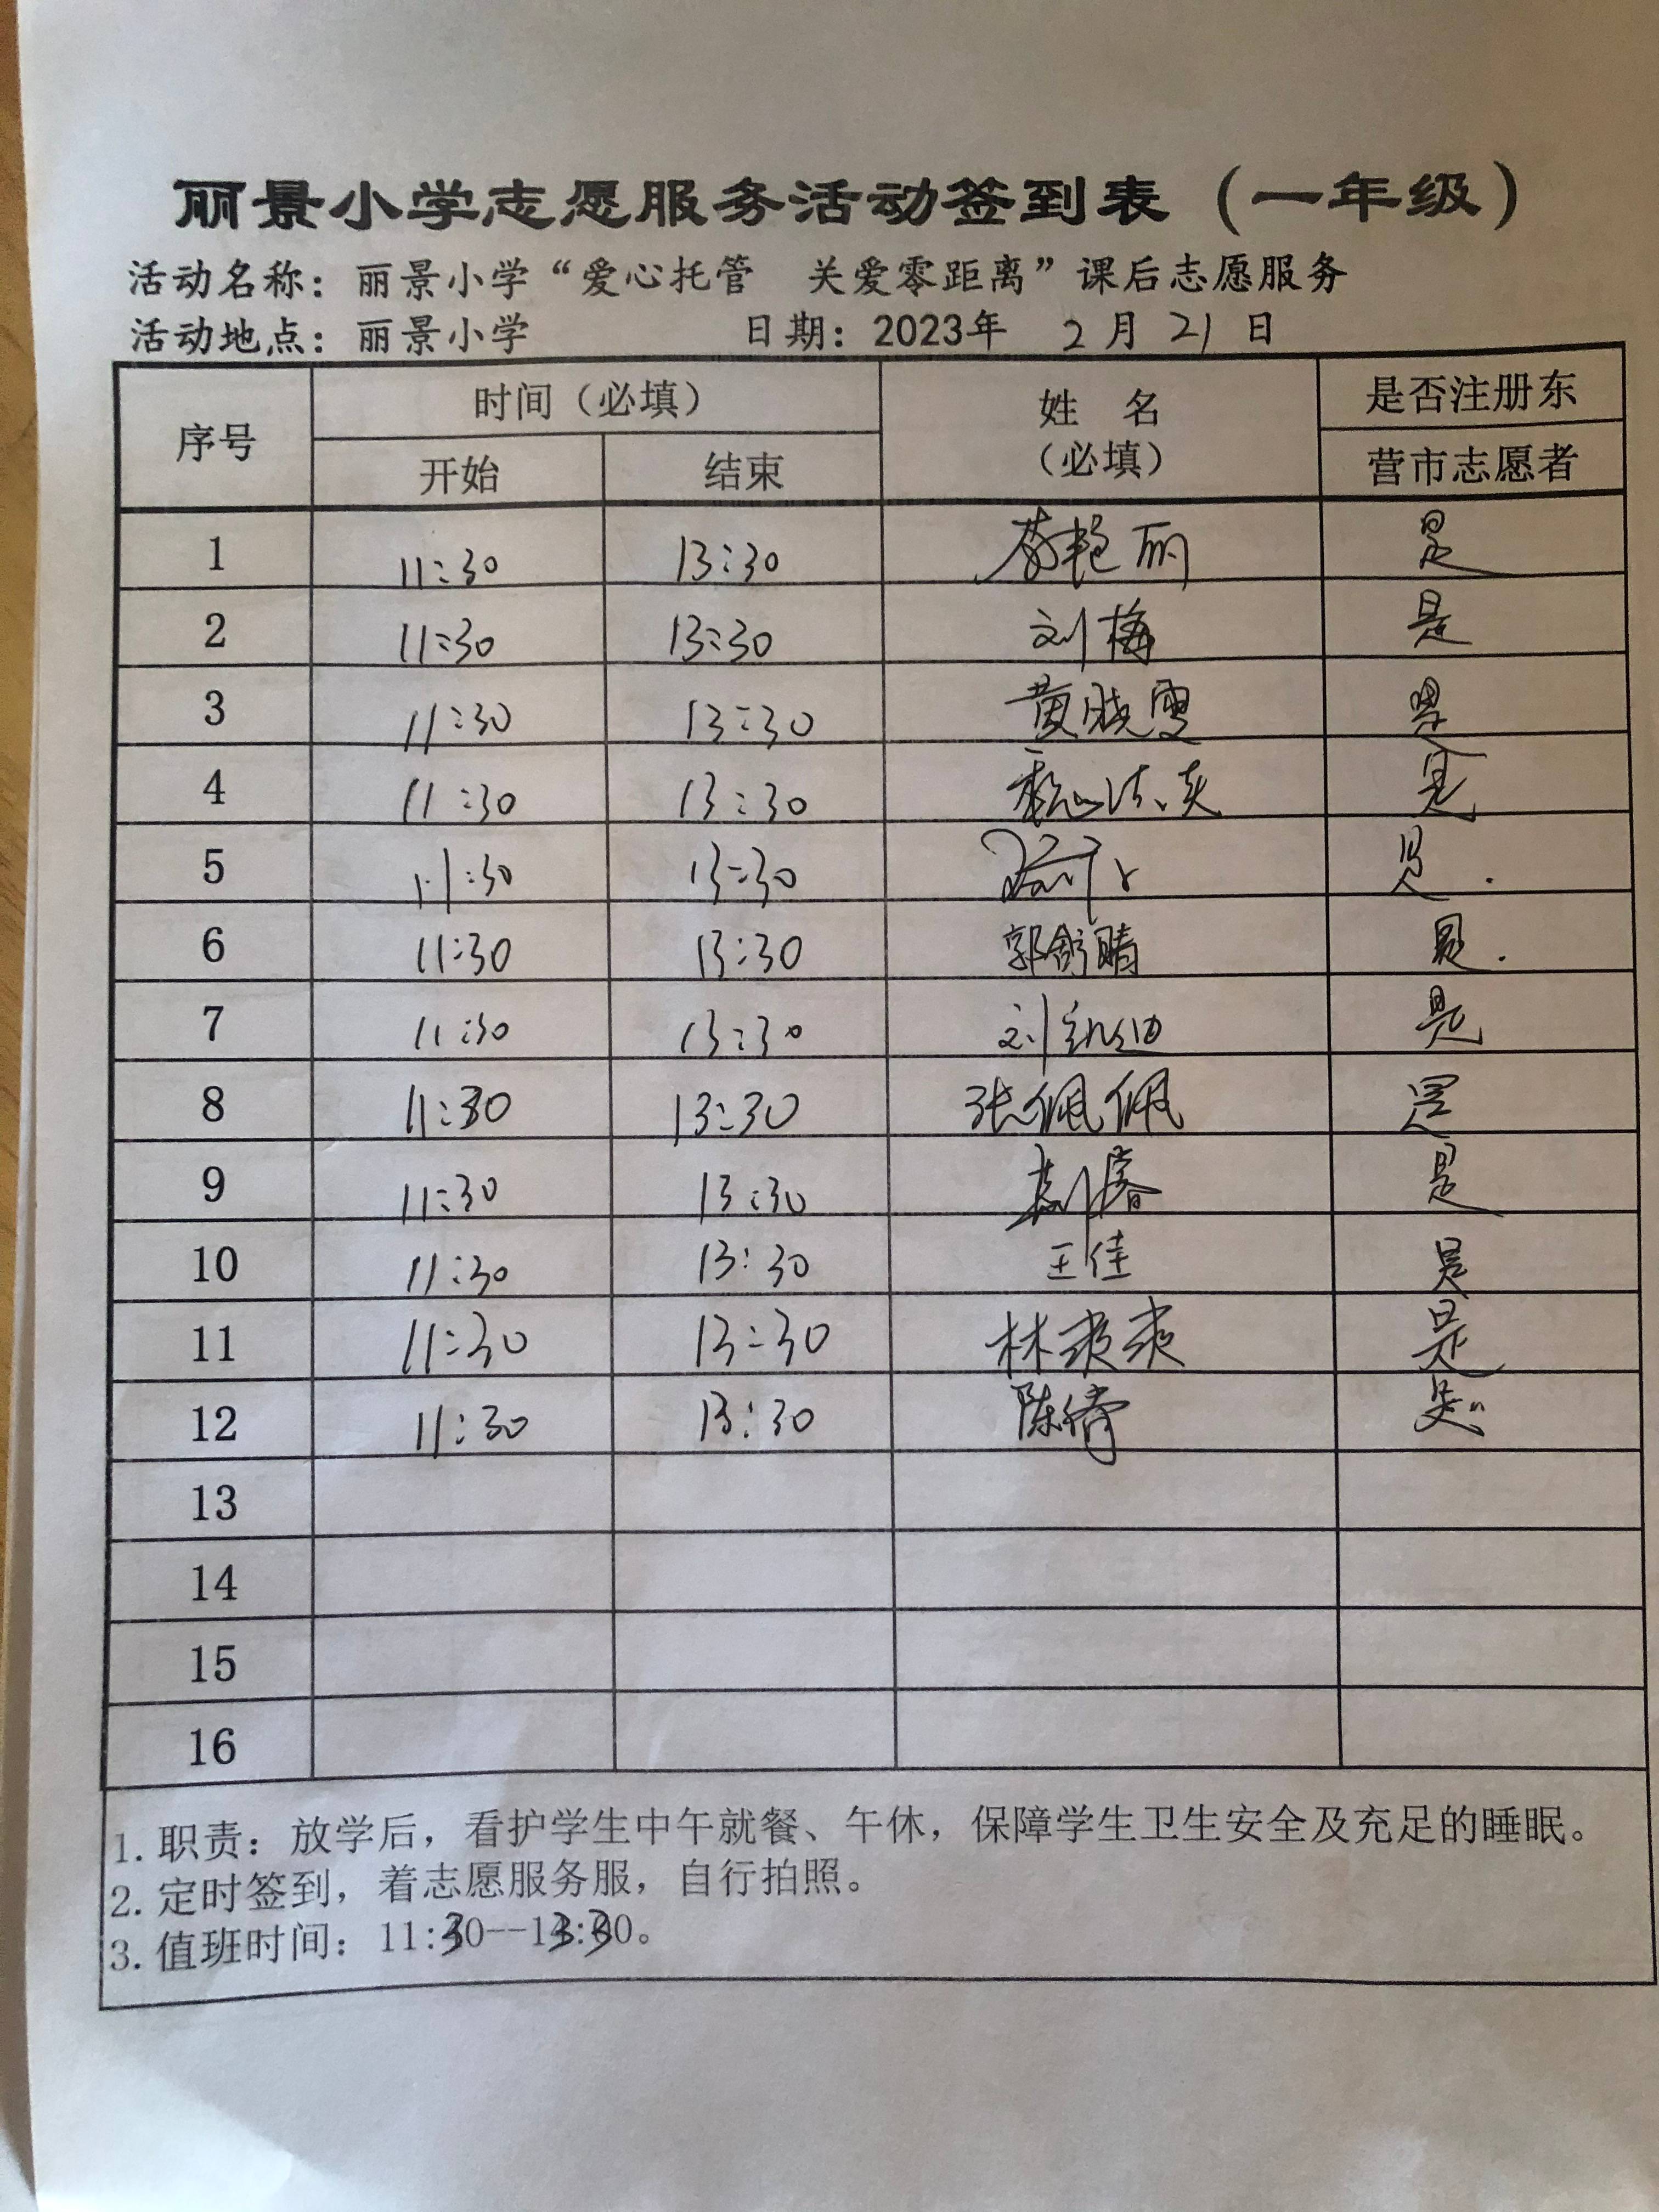 丽景小学志愿服务活动签到表（一年级）
活动名称：丽景小学“爱心托管 关爱零距离”课后志愿服务
活动地点：丽景小学 日期：2023年 2月 21日
序号 时间（必填） 姓名（必填） 是否注册东营市志愿者
开始 结束
1 11:30 13:30 艳丽 是
2 11:30 13:30 刘梅 是
3 11:30 13:30 黄晓雯 是
4 11:30 13:30 是
5 11:30 13:30 是.
6 11:30 13:30 郭舒晴 是.
7 11:30 13:30 刘凯迪 是
8 11:30 13:30 张佩佩 是
9 11:30 13:30 是
10 11:30 13:30 王佳 是
11 11:30 13:30 林爽爽 是
12 11:30 13:30 陈倩 是
13
14
15
16
1. 职责：放学后，看护学生中午就餐、午休，保障学生卫生安全及充足的睡眠。
2. 定时签到，着志愿服务服，自行拍照。
3. 值班时间：11:30--13:30。